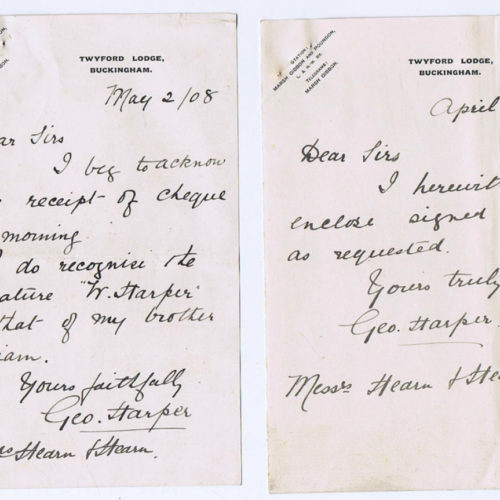 TWYFORD LODGE,
BUCKINGHAM.
May 2/08
ar Sirs
I beg to acknow
receipt of cheque
morning.
I do recognise the
ature "W. Harper"
that of my brother
iam.
Yours faithfully
Geo. Harper
rs Hearn & Hearn.
STATION:
MARSH GIBBON AND POUNDON,
L. & N.W. RY.
TELEGRAMS:
MARSH GIBBON.
TWYFORD LODGE,
BUCKINGHAM.
April
Dear Sirs
I herewit
enclose signed
as requested.
Yours truly
Geo. Harper
Messrs Hearn & Hea